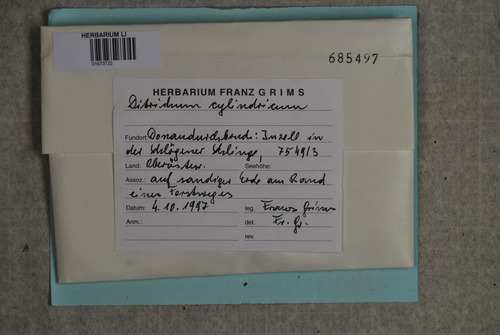 HERBARIUM LI
01673722
685497
HERBARIUM FRANZ GRIMS
Ditrichum cylindricum
Fundort: Donaudurchbruch: Inzell in
der Schlögener Schlinge, 7549/3
Land: Oberösterr. Seehöhe:
Assoz.: auf sandiger Erde am Rand
eines Forstweges
Datum: 4.10.1997 leg. Franz Grims
Anm.: det. Fr. Gr.
rev.